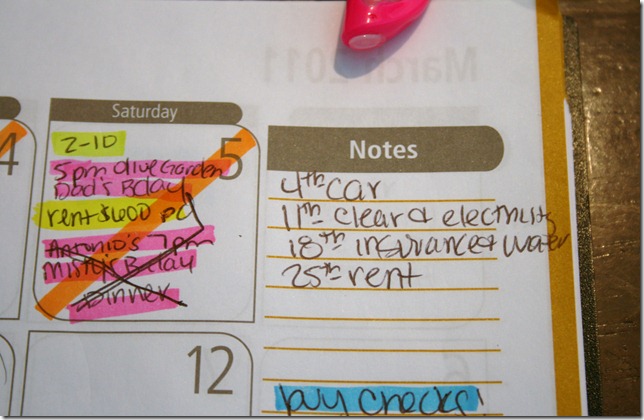 March 2011
Saturday
4
5
2-10
5pm Olive Garden
Dad's Bday
rent $600 pd
Antonio's 7pm
Misty's Bday
Dinner
12
Notes
4th car
11th clear & electricity
18th insurance & water
25th rent
buy checks!